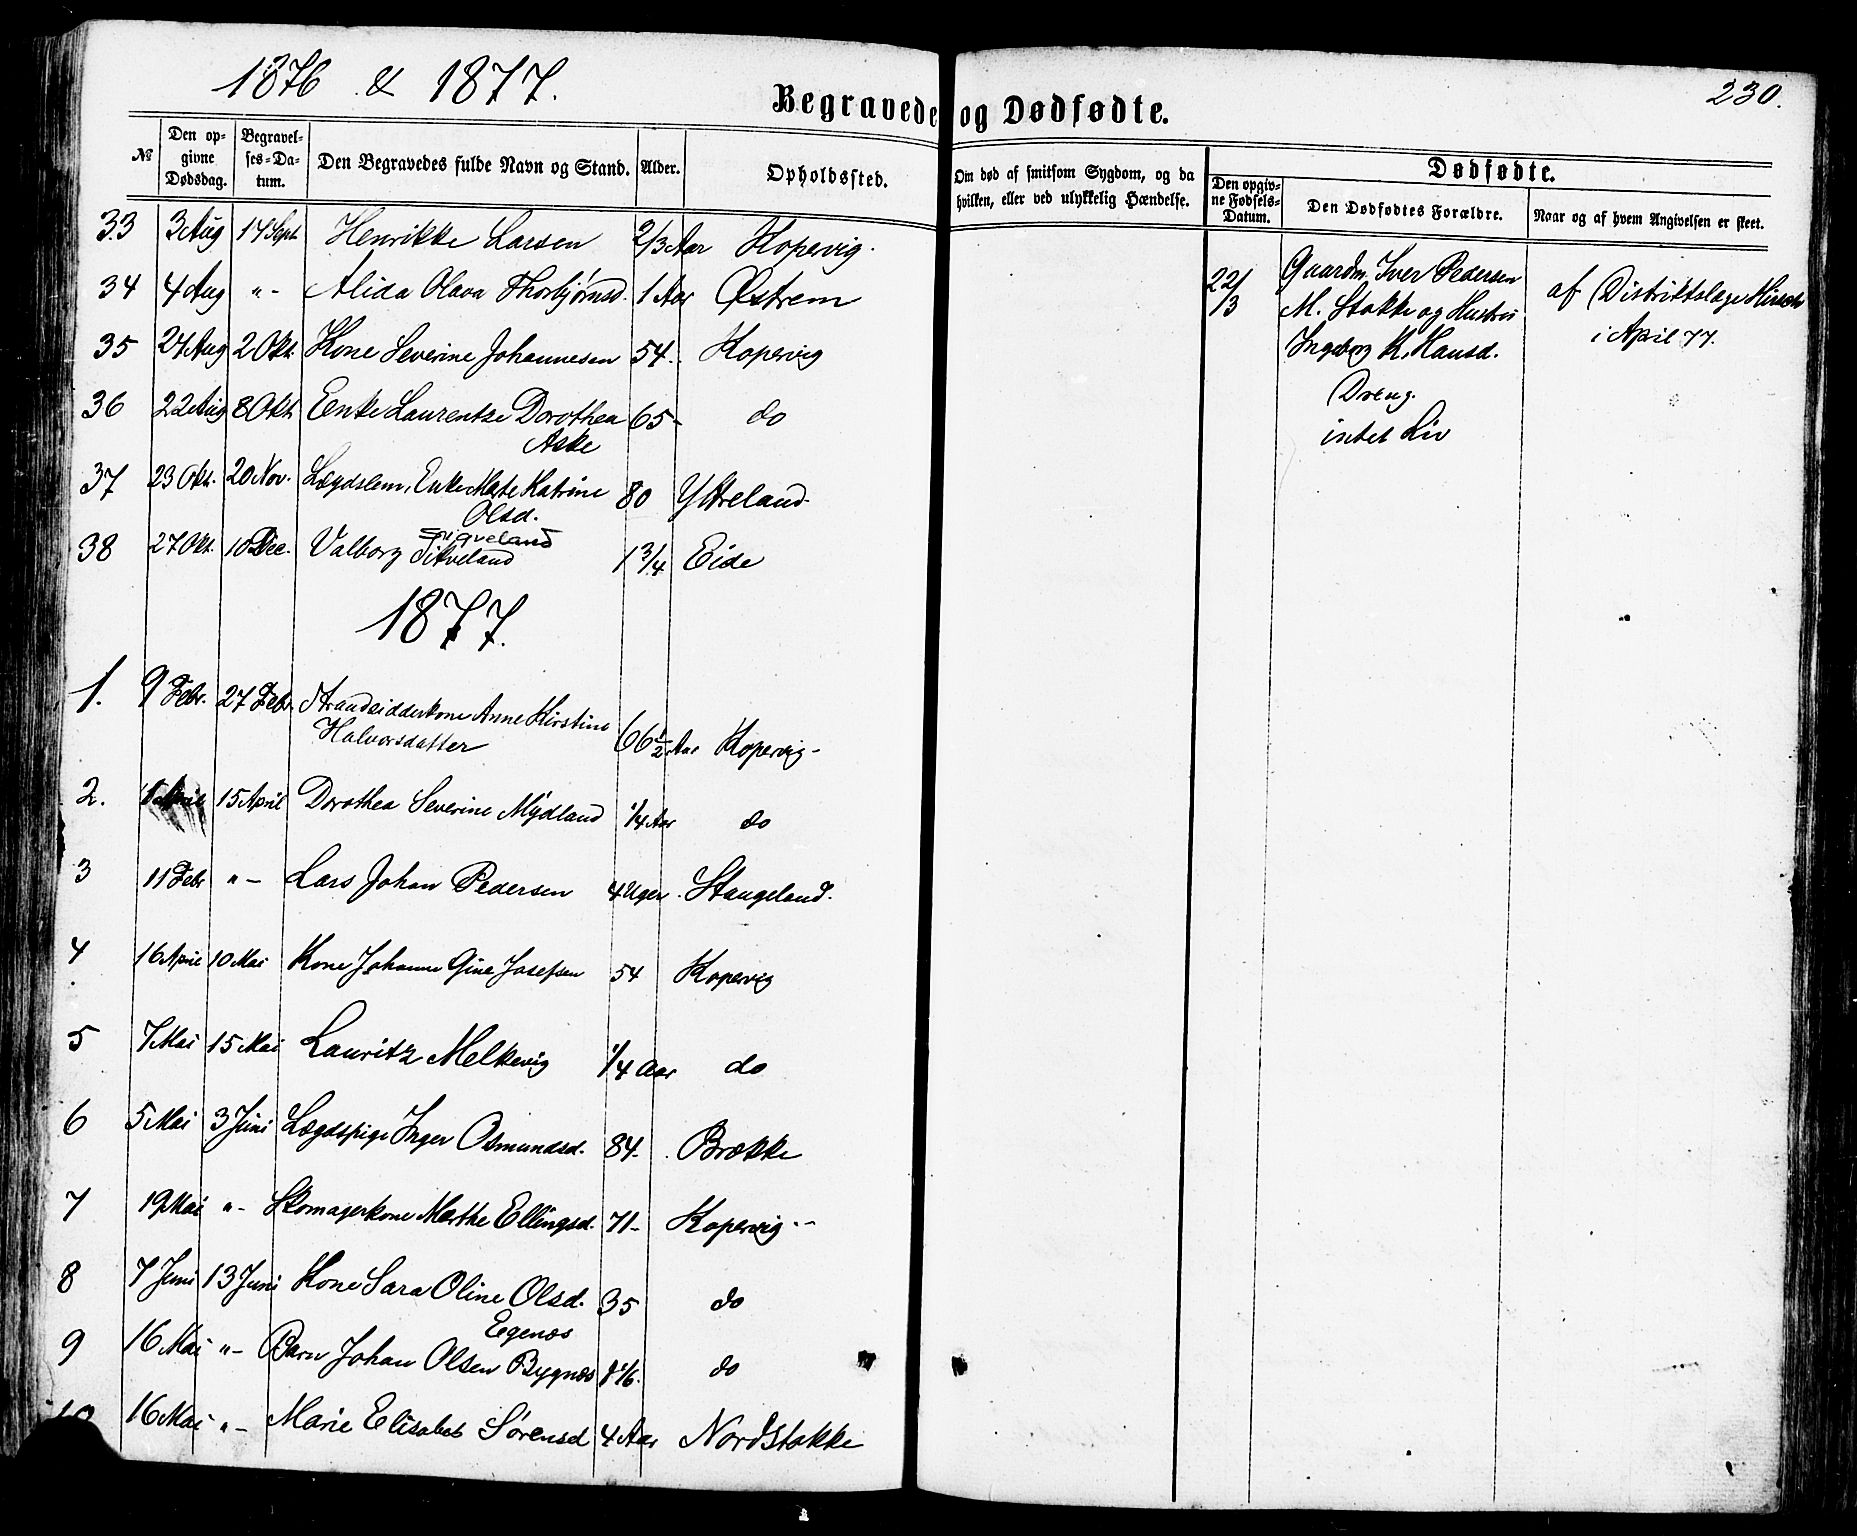 1876 & 1877.
Begravede og Dødfødte.
230.
№ Den opgivne Dødsdag. Begravelses-Datum. Den Begravedes fulde Navn og Stand. Alder. Opholdssted. Om død af smitsom Sygdom, og da hvilken, eller ved ulykkelig Hændelse.
Dødfødte.
Den opgivne Fødsels-Datum. Den Dødfødtes Forældre. Naar og af hvem Angivelsen er skeet.
33 3 Aug 14 Sept Henrikke Larsen 2/3 Aar Kopervig.
34 4 Aug "- Alida Olava Thorbjørnsd. 1 Aar Østrem
35 24 Aug 2 Okt. Kone Severine Johannesen 54. Kopervig
36 22 Aug 8 Okt Enke Laurentze Dorothea 65- do
Aske
37 23 Okt. 20 Nov. Lægdslem, Enke Marte Katrine 80 Ytreland
Olsd.
Sygveland
38 27 Okt. 10 Dec. Valborg 1 3/4 Eide
1877.
1. 9 Febr. 27 Febr Strandsidderkone Anne Kirstine
Halvorsdatter 66 1/2 Aar Kopervig-
2. 15 April Dorothea Severine Mydland 1/4 Aar do
3 11 Febr "- Lars Johan Pedersen 4 Uger. Stangeland.
4 16 April 10 Mai Kone Johanne Gine Josefsen 54 Kopervig
5 7 Mai 15 Mai Lauritz Melkevig 1/4 Aar do
6 5 Mai 3 Juni Lægdspige Inger Osmundsd. 84. Brække
7 19 Mai "- Skomagerkone Marthe Ellingsd. 71- Kopervig--
8 7 Juni 13 Juni Kone Sara Oline Olsd. 35 do
Egenæs
9 16 Mai "- Barn Johan Olsen Bygnæs do
10 16 Mai "- Marie Elisabet Sørensd 4 Aar Nordstokke
22/3 Gaardm. Iver Pedersen
M. Stokke og Hustru
Ingeborg K. Hansd.
Dreng.
intet Liv
af Distriktslæge
i April 77.